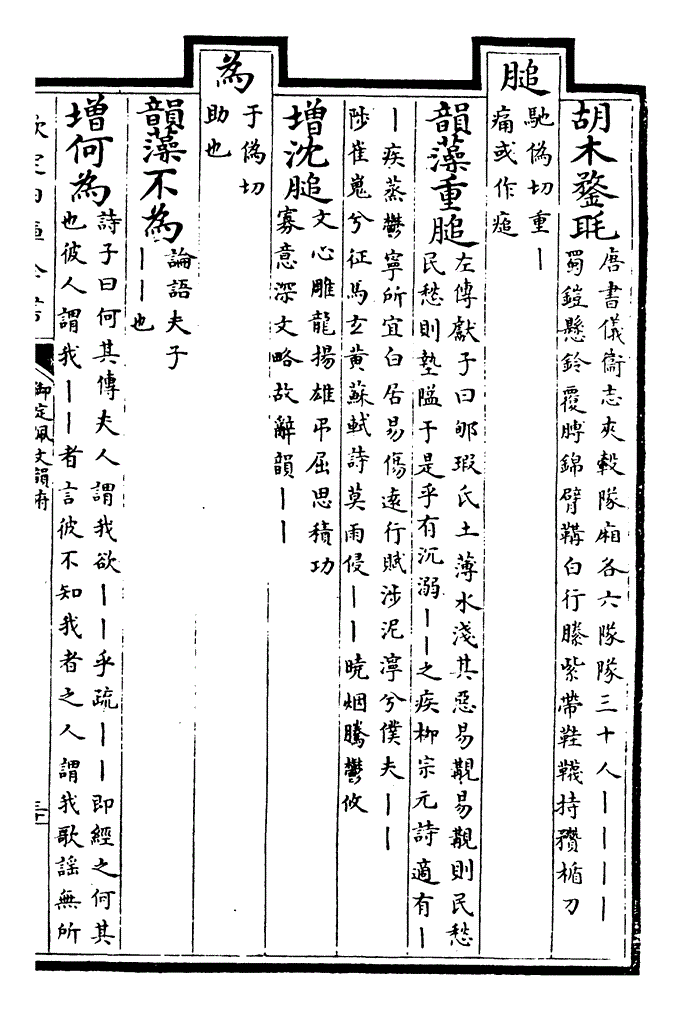 胡木鍪毦
唐書儀衛志夾轂隊廂各六隊隊三十人丨丨丨丨
蜀鎧懸鈴覆膊錦臂韝白行縢紫帶鞋韈持䂎楯刀
膇
馳僞切重丨
痛或作㾽
韻藻重膇
左傳獻子曰郇瑕氏土薄水淺其惡易覯易覯則民愁
民愁則墊隘于是乎有沉溺丨丨之疾柳宗元詩適有丨
丨疾蒸鬱寧所宜白居易傷遠行賦涉泥濘兮僕夫丨丨
陟崔嵬兮征馬玄黄蘇軾詩莫雨侵丨丨曉烟騰鬱攸
增沈膇
文心雕龍揚雄弔屈思積功
寡意深文略故辭韻丨丨
為
于僞切
助也
韻藻不為
論語夫子
丨丨也
增何為
詩子曰何其傳夫人謂我欲丨丨乎疏丨丨即經之何其
也彼人謂我丨丨者言彼不知我者之人謂我歌謡無所
御定佩文韻府